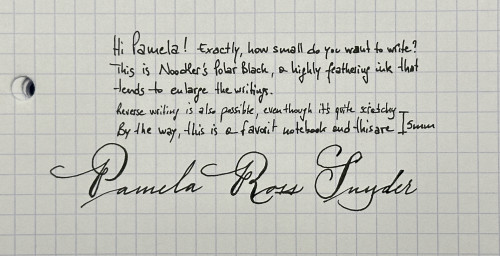 Hi Pamela! Exactly, how small do you want to write?
This is Noodler's Polar Black, a highly feathering ink that
tends to enlarge the writings.
Reverse writing is also possible, even though it's quite scratchy
By the way, this is a favorit notebook and this are 5mm
Pamela Ross Snyder